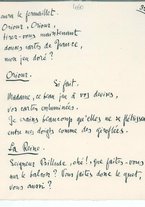 sous le feuillet.
Oriour, Oriour,
tirez-vous maintenant
douces cartes de France,
mon jeu doré ?
Oriour.
Si fait.
Madame, ce beau jeu à vos devins,
vos cartes enluminées.
Je crains beaucoup qu'elles ne se flétrissent
entre vos doigts comme des giroflées.
La Reine.
Seigneur Brillude, ohé !, que faites-vous
sur le balcon ? Vous faites donc le guet,
vous aussi ?